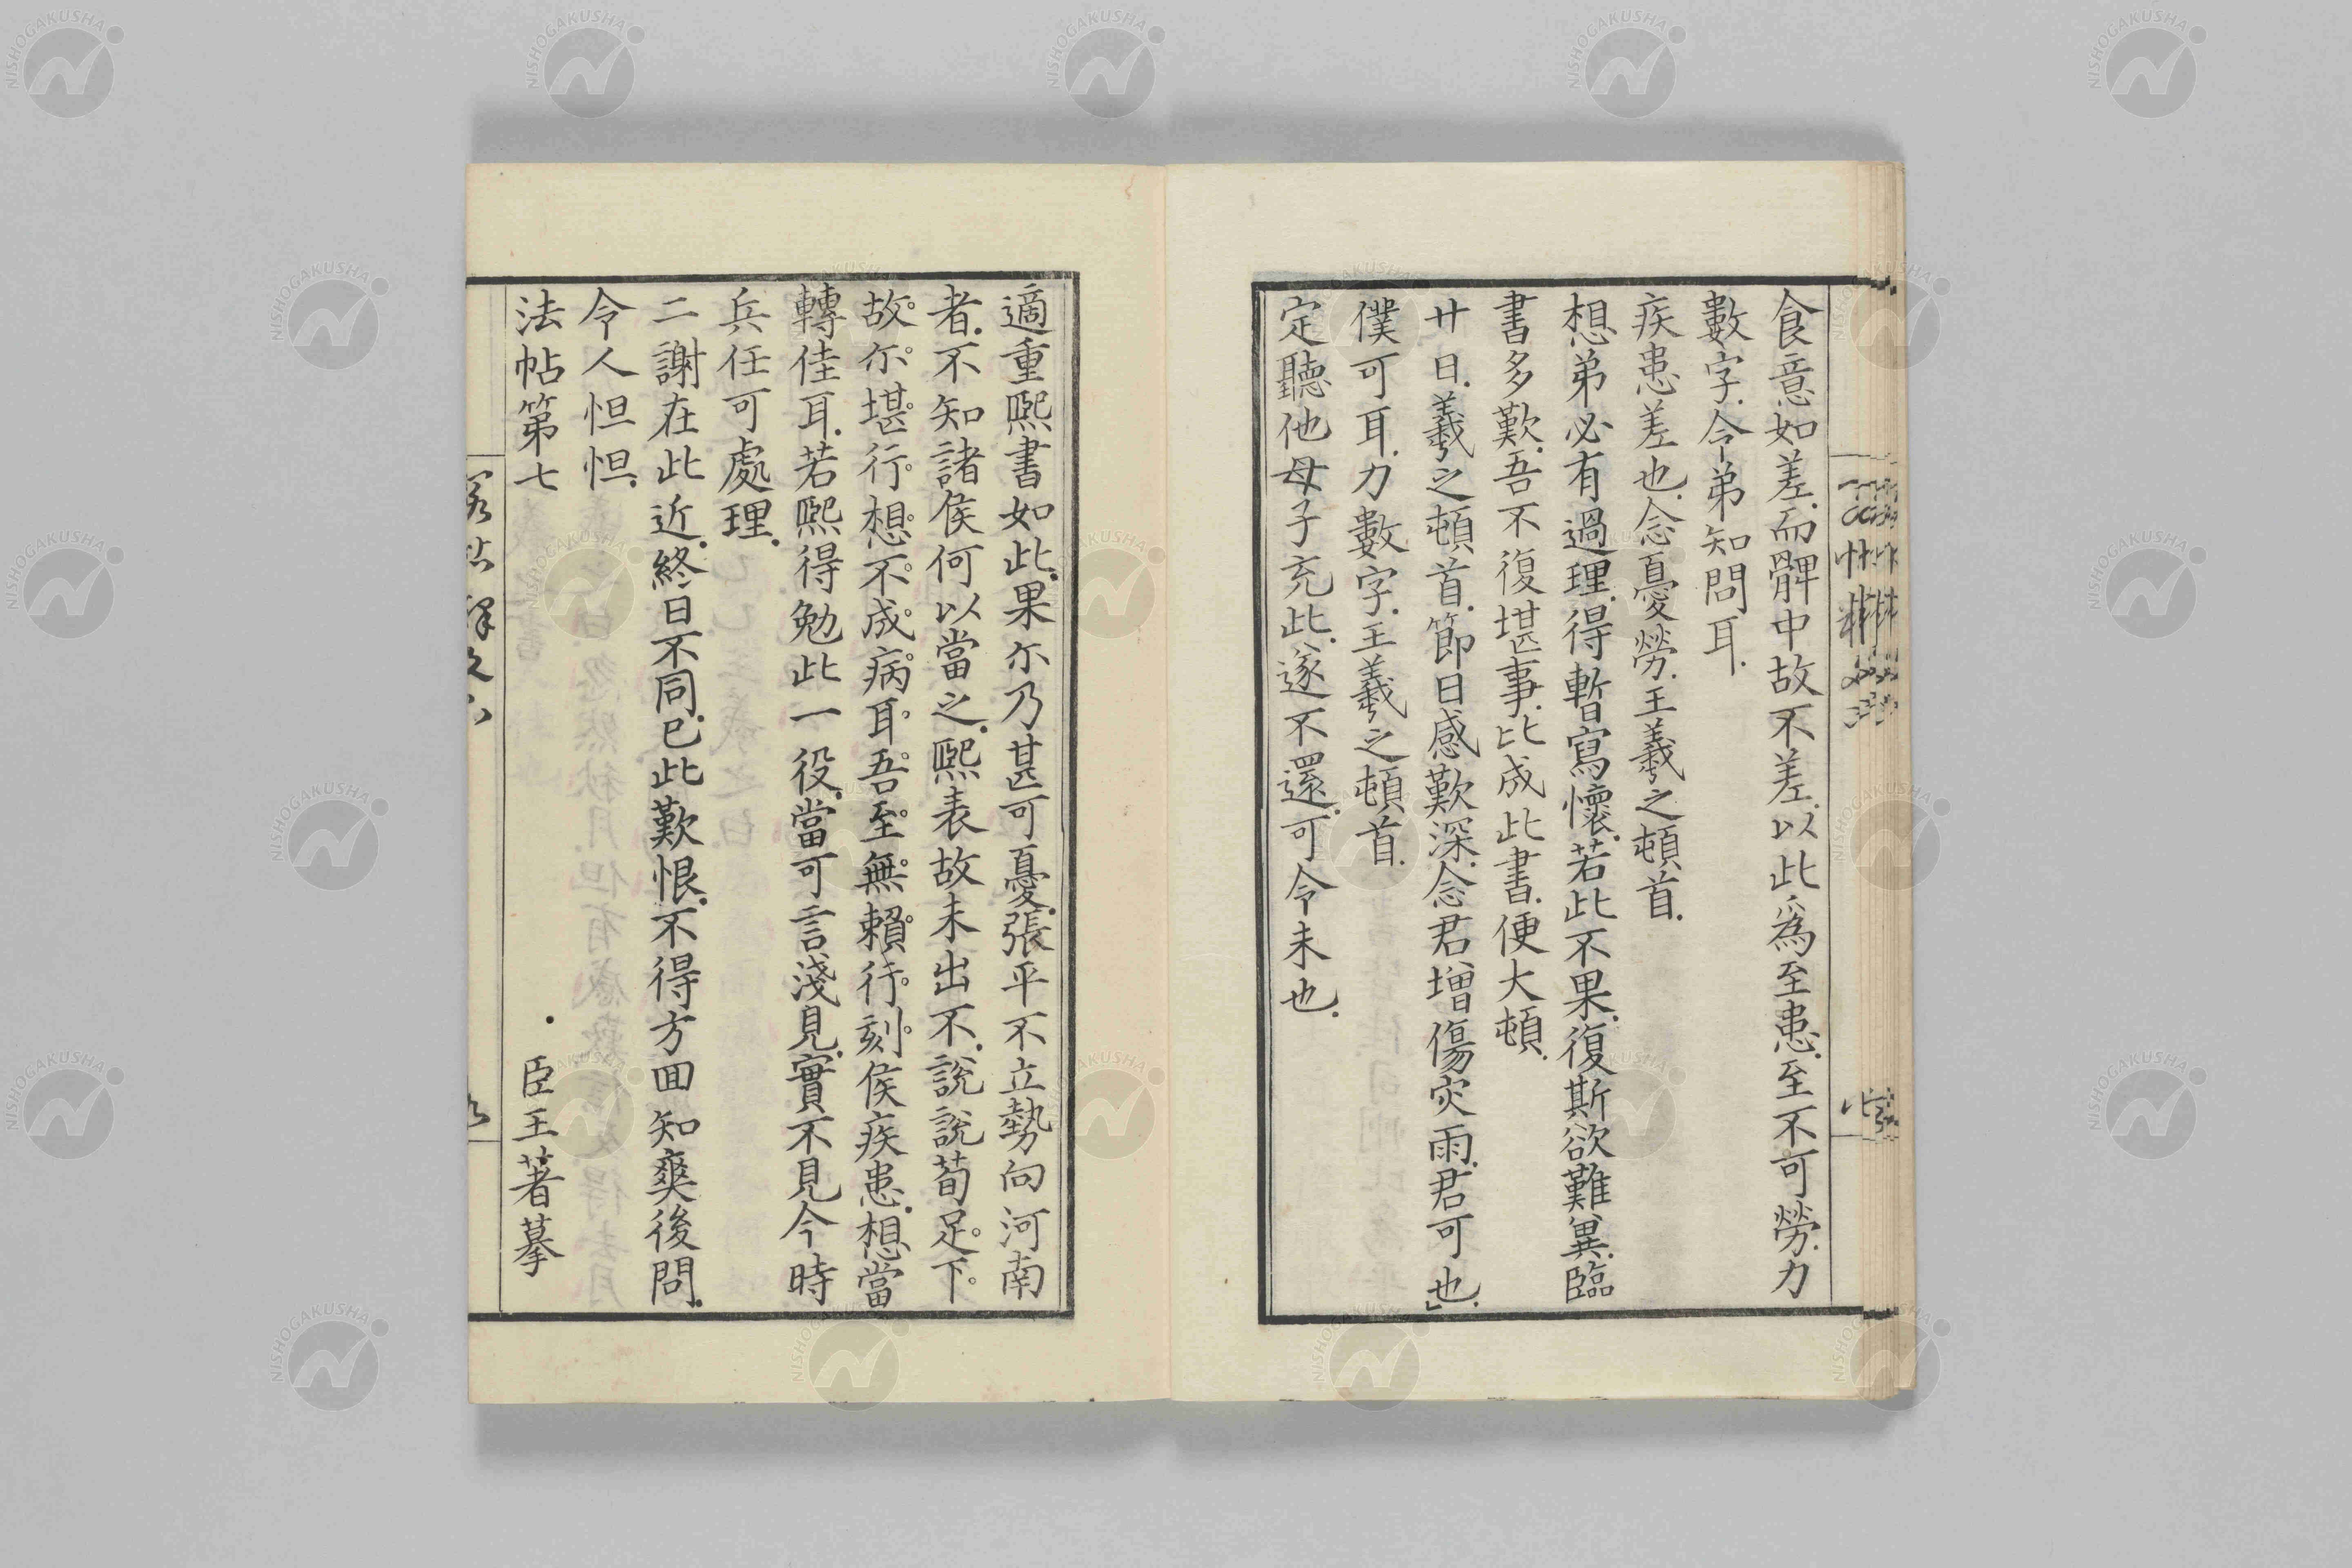 食意如差.而髀中故不差.以此爲至患.至不可勞.力
數字.令弟知問耳.
疾患差也.念憂勞.王羲之頓首.
想弟必有過理.得暫寫懷.若此不果.復斯欲難冀.臨
書多歎.吾不復堪事.比成此書.便大頓.
廿日.羲之頓首.節日感歎深.念君增傷灾雨.君可也.
僕可耳.力數字.王羲之頓首.
定聽他母子充此.遂不還.可令未也.
適重熙書如此.果尒乃甚可憂.張平不立勢向河南
者.不知諸侯何以當之.熙表故未出不.說說荀足。下。
故。尒。堪。行。想。不。成。病。耳。吾。至。無。賴。行。刻。侯疾患.想當
轉佳耳.若熙得勉此一役.當可言淺見.實不見今時
兵任可處理.
二謝在此近.終日不同.已此歎恨.不得方回知爽後問.
令人怛怛.
法帖第七 臣王著摹
NISHOGAKUSHA